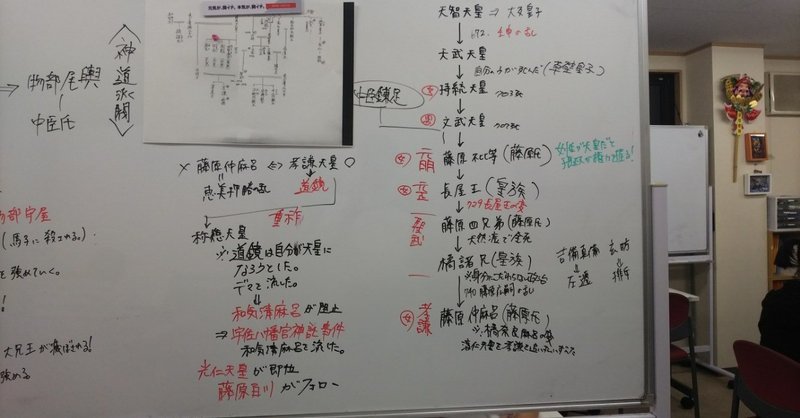 <神道派閥>
物部尾輿
中臣氏
部守屋
(馬子に殺される。)
を強めていく。
!
大兄王が滅ぼされる!
強める
× 藤原仲麻呂 ⇔ 孝謙天皇 ○
恵美押勝の乱
道鏡
重祚
称徳天皇
※道鏡は自分が天皇に
なろうとした。
デマを流した。
和気清麻呂が阻止
⇒宇佐八幡宮神託事件
和気清麻呂を流した。
光仁天皇が即位
藤原百川がフォロー
天智天皇 ⇒ 大友皇子
672. 壬申の乱
天武天皇
自分の子が死んだ(草壁皇子)
中臣鎌足
女 持統天皇
男 文武天皇
女 元明 藤原不比等(藤原氏)
女性が天皇だと
女 元正 長屋王(皇族)
729 長屋王の変
聖武 藤原四兄弟(藤原氏)
天然痘で全死
橘諸兄(皇族)
吉備真備 玄昉
左遷 排斥
740 藤原広嗣の乱
女 孝謙 藤原仲麻呂(藤原氏)
※橘奈良麻呂の変